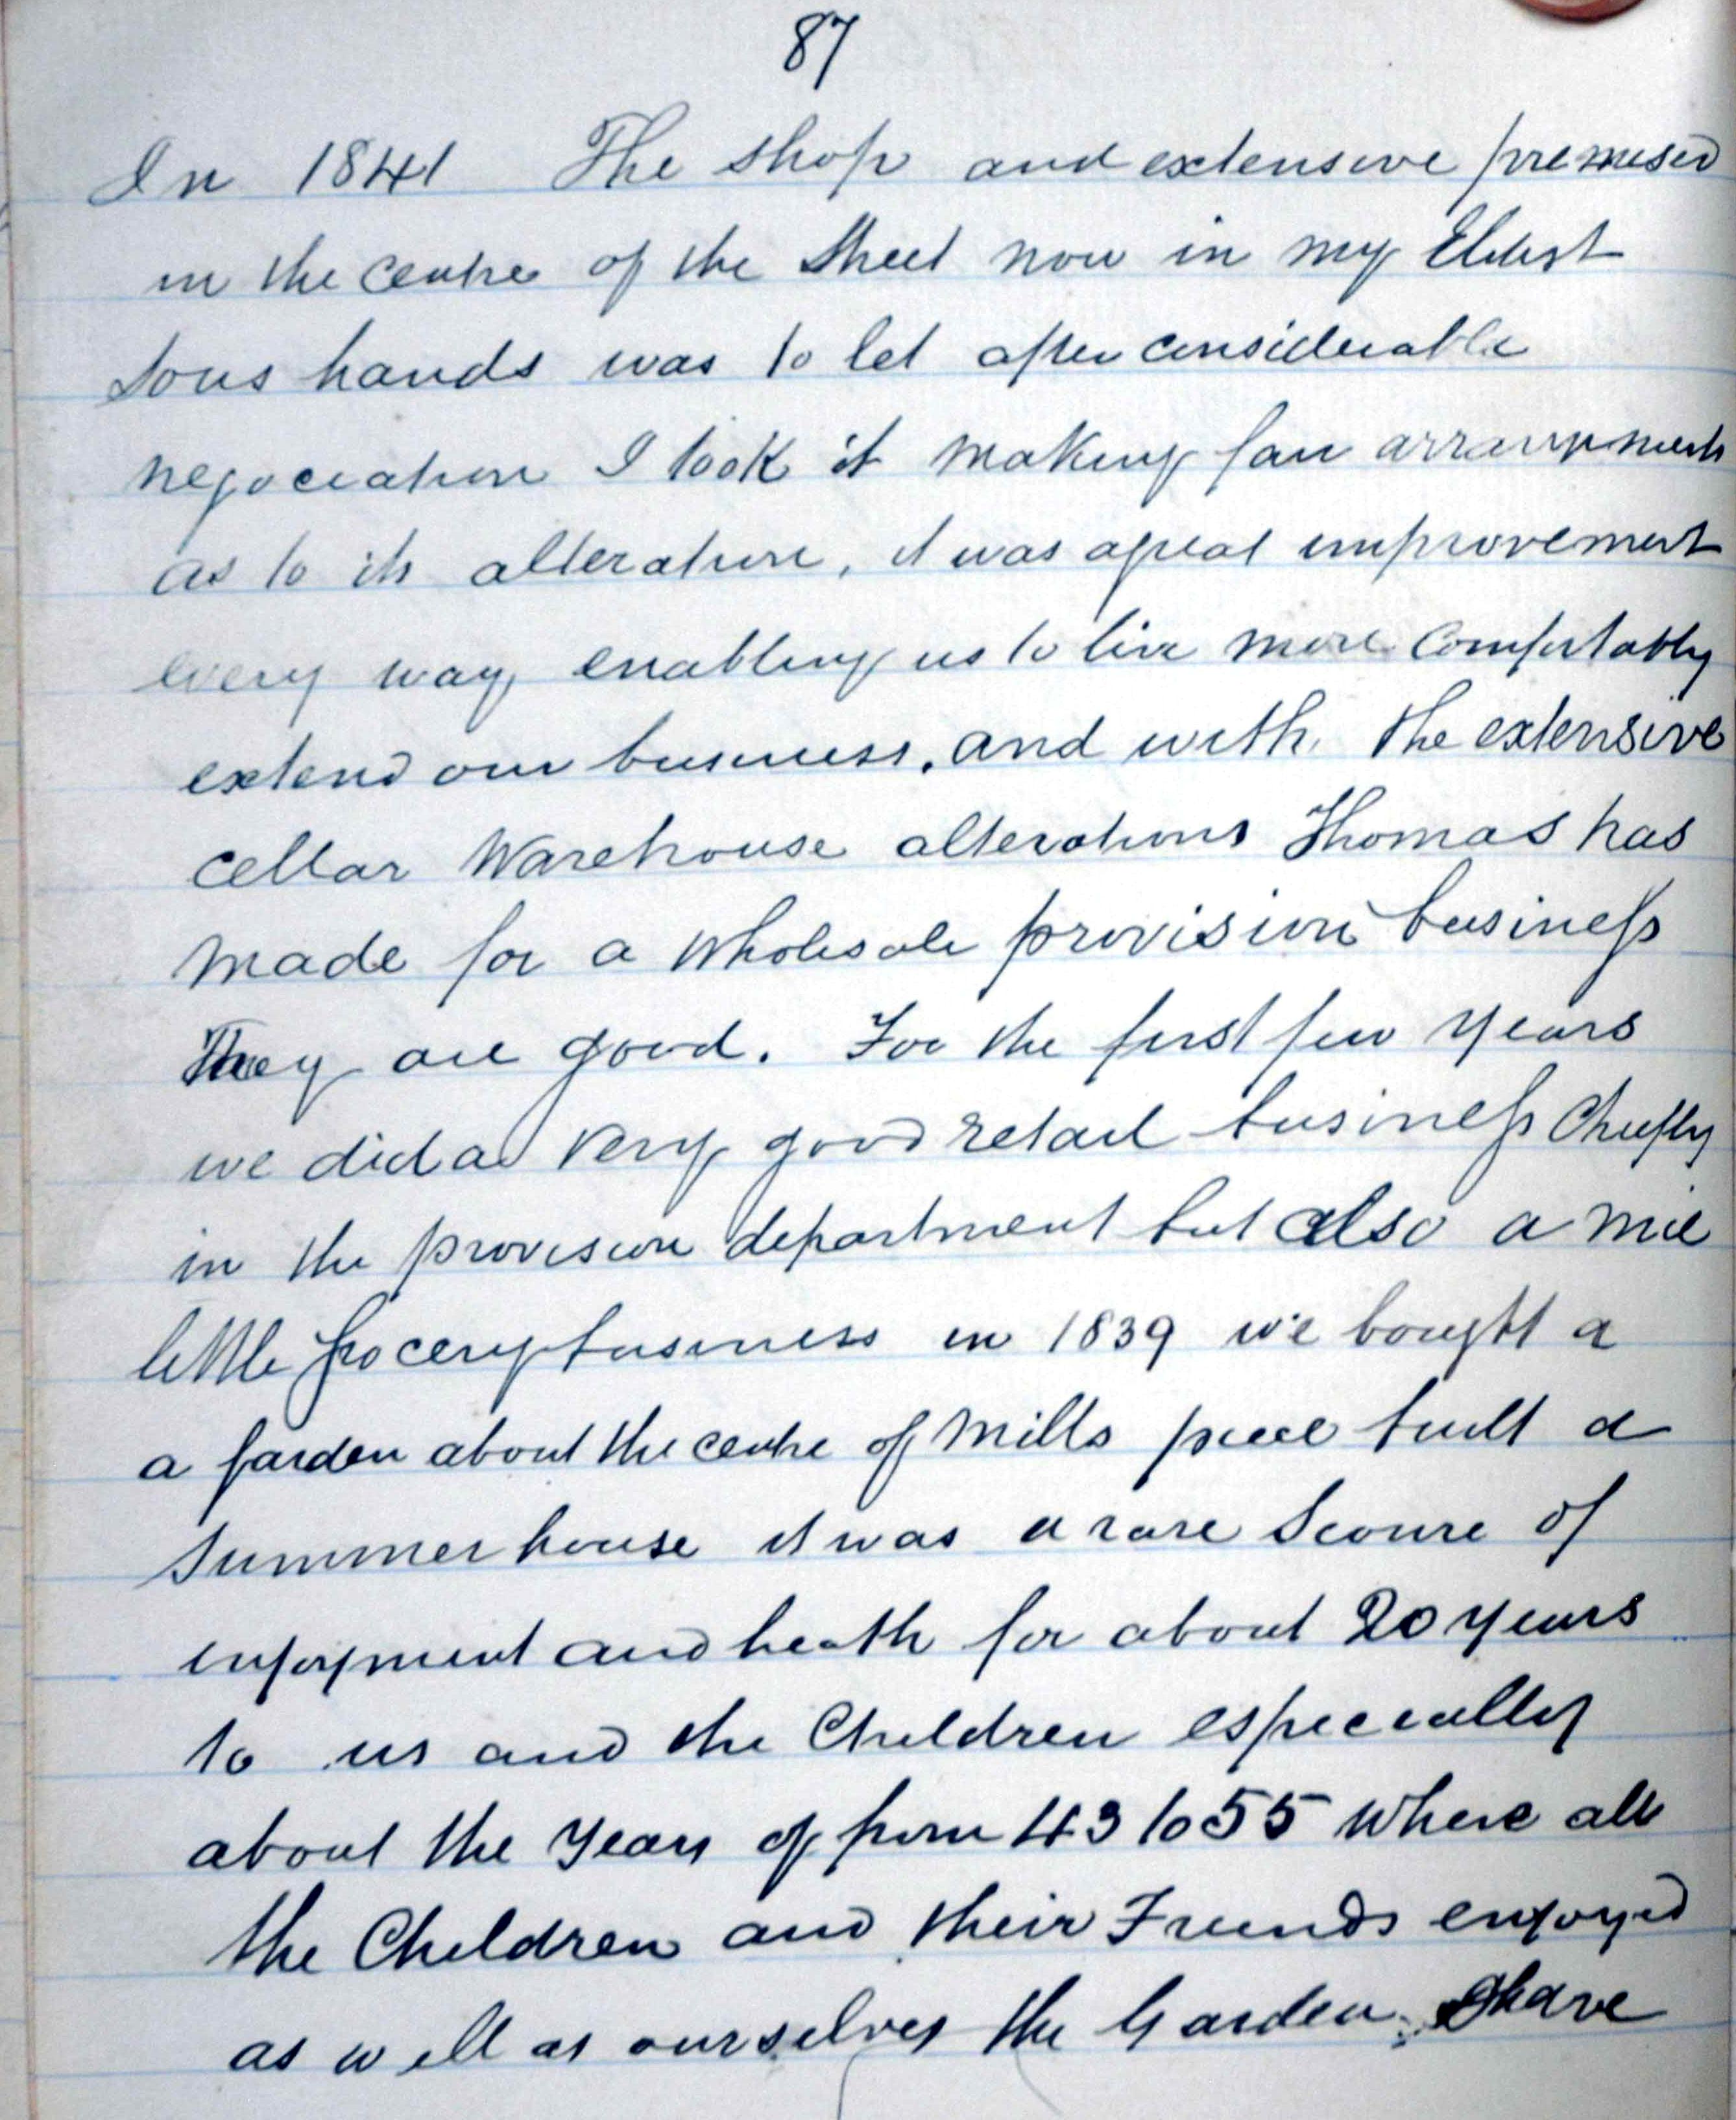 87
In 1841 The shop and extensive premises
in the centre of the Street now in my Eldest
Sons hands was to let after considerable
negociation I took it making fair arrangements
as to its alteration, it was a great improvement
every way enabling us to live more Comfortably
extend our business, and with the extensive
cellar Warehouse alterations Thomas has
made for a wholesale provision business
They are good. For the first few years
we did a very good retail business Chiefly
in the provision department but also a nice
little grocery business in 1839 we bought a
a garden about the centre of Mills piece built a
Summer house it was a rare Source of
enjoyment and heath for about 20 years
to us and the Children especially
about the years of from 43 to 55 where all
the Children and their Friends enjoyed
as well as ourselves the Garden I have